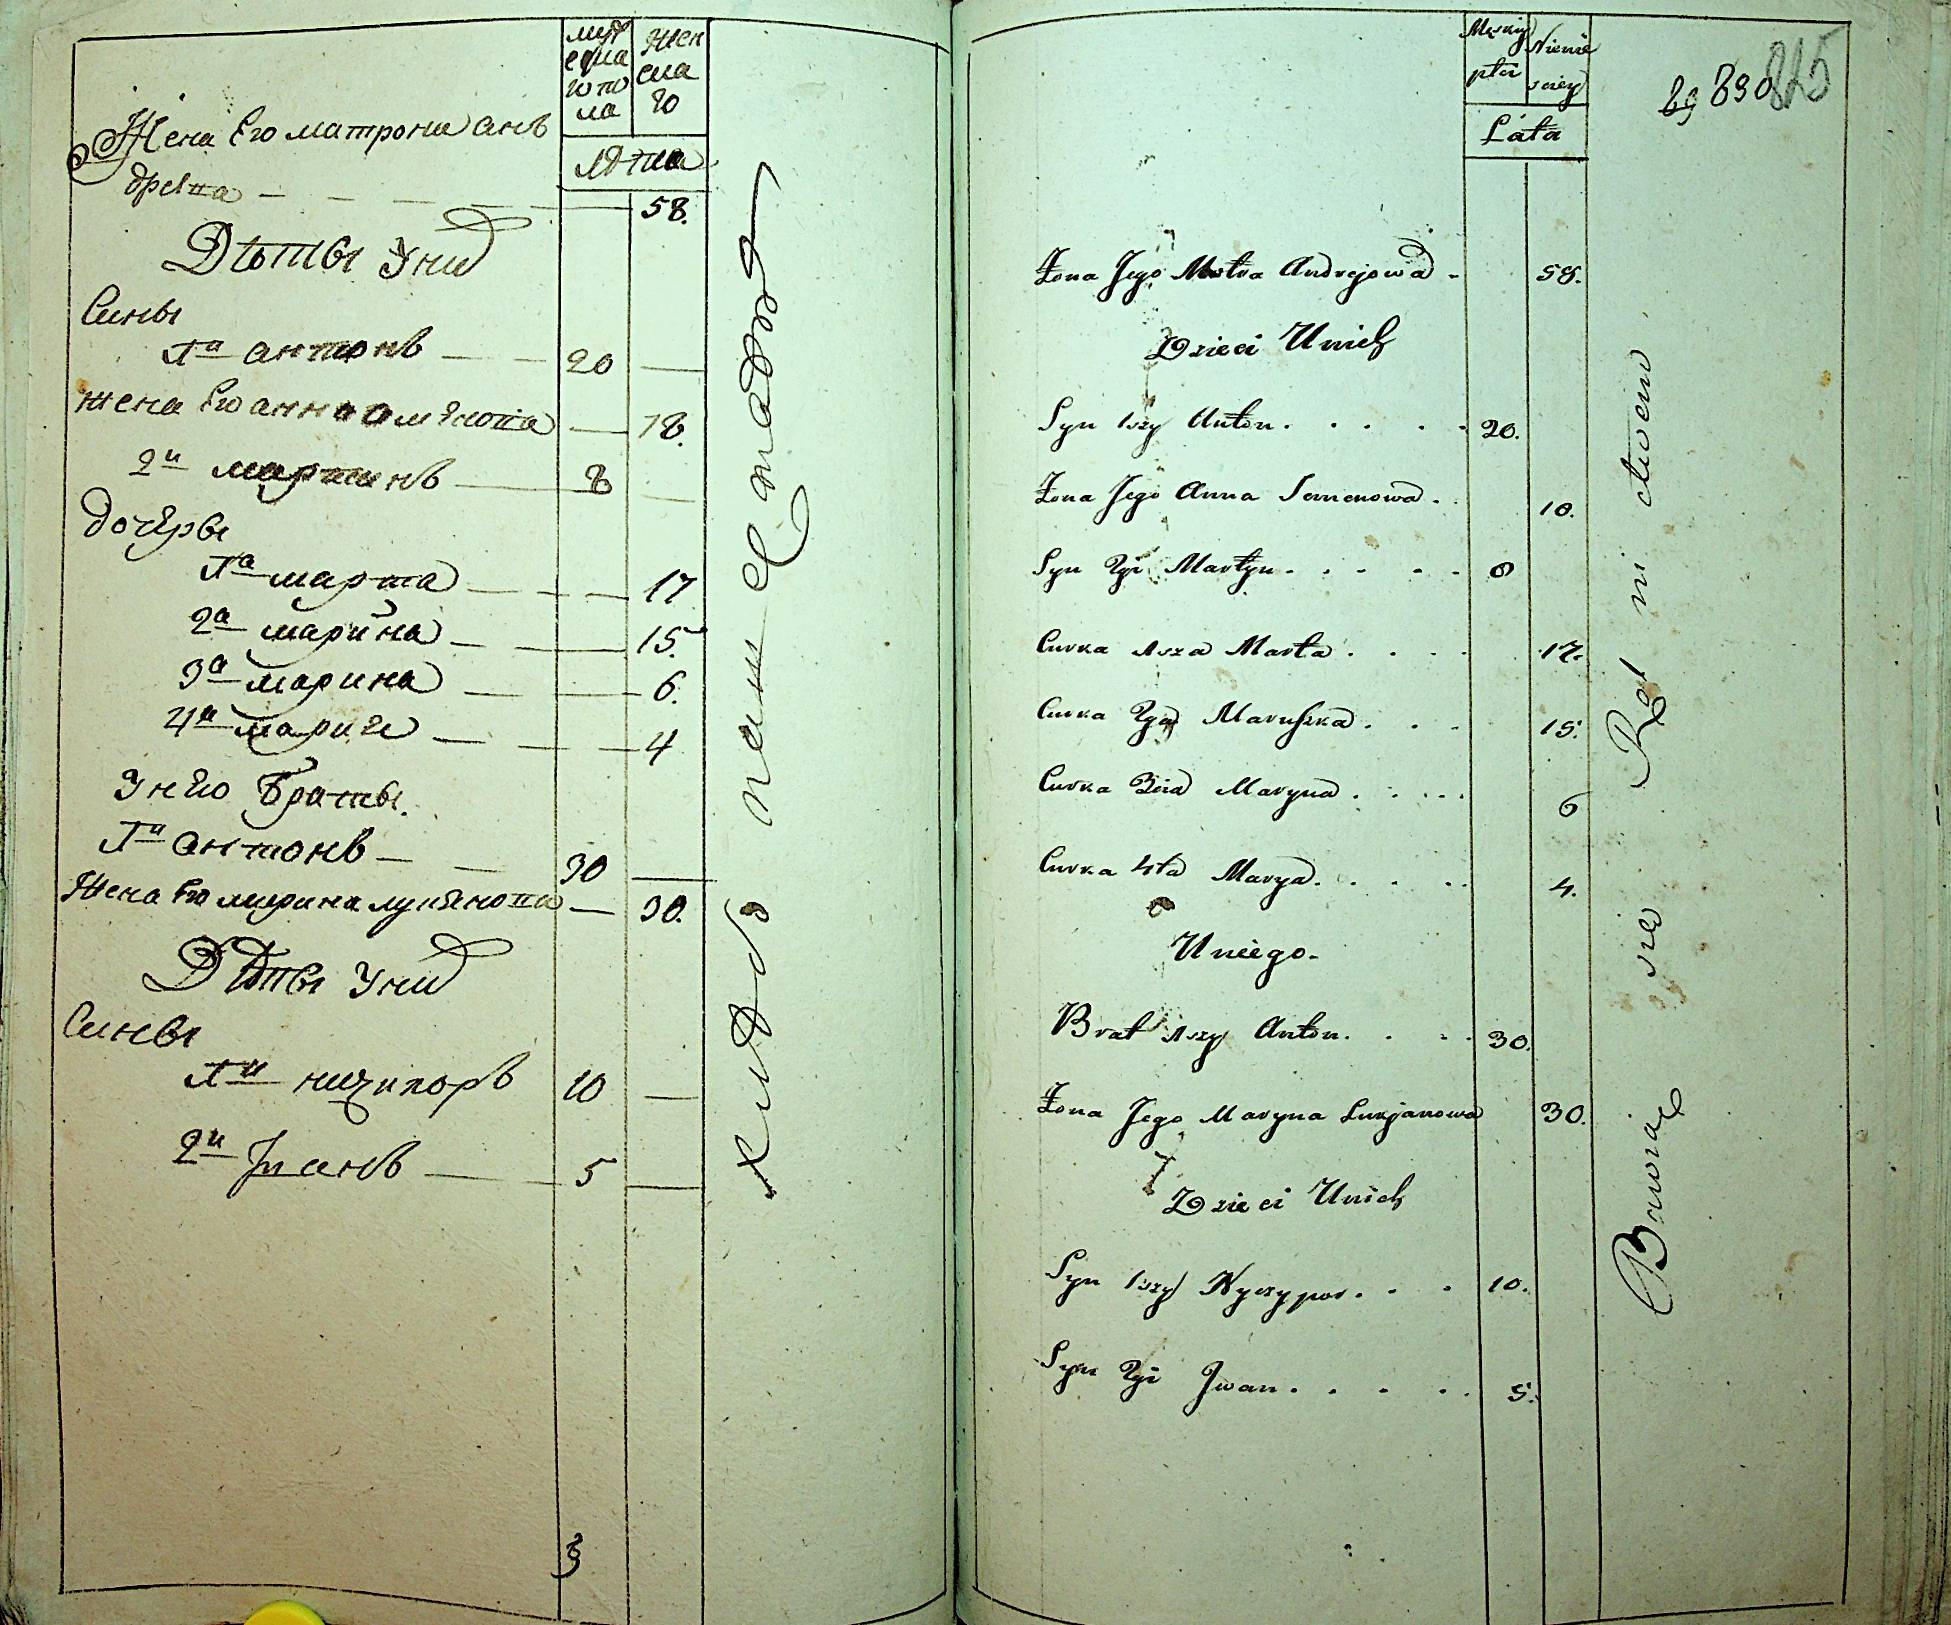 мужескаго пола
женскаго
Лѣта
Жена Его матрона анъ
древа 58.
Дѣтѣы Уних
Сины
1й антонъ 20
жена Его анна 18.
2й мартинъ 8
дочеры
1а марта 17
2а марина 15.
3а марина 6.
4а мария 4
Унего браты.
1й антонъ 30
Жена Его марина лукянова 30.
Дѣты Уних
Сины
1й ничипоръ 10
2й Іванъ 5
3
Męskiey płci
Niewieściey
Lata
89 890 825
Żona Jego Motra Andrejowa 58.
Dzieci Unich
Syn 1szy Anton 20.
Żona Jego Anna Semenowa 18.
Syn 2gi Martyn 8
Curka 1sza Marta 17.
Curka 2ga Maruszka 15.
Curka 3cia Maryna 6
Curka 4ta Marya 4.
Uniego
Brat 1szy Anton 30.
Żona Jego Maryna Lukjanowa 30.
Dzieci Unich
Syn 1szy Nyczypor 10.
Syn 2gi Jwan 5.